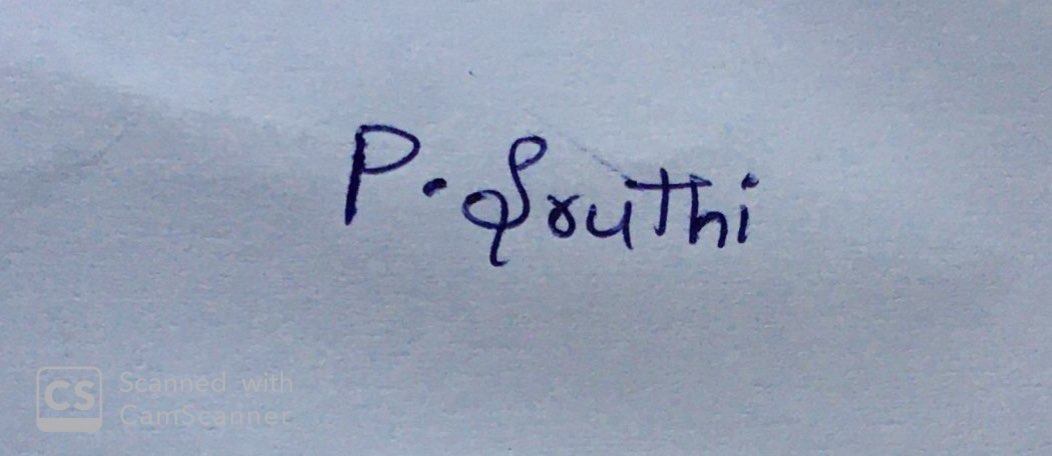 P. Sruthi
CS Scanned with
CamScanner